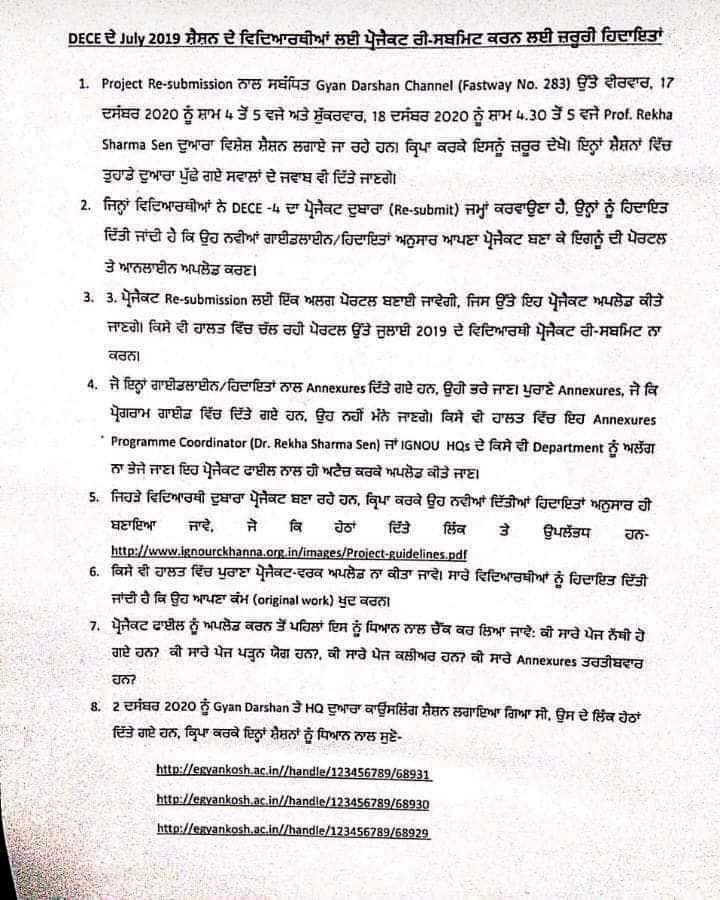 DECE ਦੇ July 2019 ਸ਼ੈਸ਼ਨ ਦੇ ਵਿਦਿਆਰਥੀਆਂ ਲਈ ਪ੍ਰੋਜੈਕਟ ਰੀ-ਸਬਮਿਟ ਕਰਨ ਲਈ ਜ਼ਰੂਰੀ ਹਿਦਾਇਤਾਂ
1. Project Re-submission ਨਾਲ ਸਬੰਧਿਤ Gyan Darshan Channel (Fastway No. 283) ਉੱਤੇ ਵੀਰਵਾਰ, 17
ਦਸੰਬਰ 2020 ਨੂੰ ਸ਼ਾਮ 4 ਤੋਂ 5 ਵਜੇ ਅਤੇ ਸ਼ੁੱਕਰਵਾਰ, 18 ਦਸੰਬਰ 2020 ਨੂੰ ਸ਼ਾਮ 4.30 ਤੋਂ 5 ਵਜੇ Prof. Rekha
Sharma Sen ਦੁਆਰਾ ਵਿਸ਼ੇਸ਼ ਸ਼ੈਸ਼ਨ ਲਗਾਏ ਜਾ ਰਹੇ ਹਨ। ਕ੍ਰਿਪਾ ਕਰਕੇ ਇਸਨੂੰ ਜ਼ਰੂਰ ਦੇਖੋ। ਇਨ੍ਹਾਂ ਸ਼ੈਸ਼ਨਾਂ ਵਿੱਚ
ਤੁਹਾਡੇ ਦੁਆਰਾ ਪੁੱਛੇ ਗਏ ਸਵਾਲਾਂ ਦੇ ਜਵਾਬ ਵੀ ਦਿੱਤੇ ਜਾਣਗੇ।
2. ਜਿਨ੍ਹਾਂ ਵਿਦਿਆਰਥੀਆਂ ਨੇ DECE -4 ਦਾ ਪ੍ਰੋਜੈਕਟ ਦੁਬਾਰਾ (Re-submit) ਜਮ੍ਹਾਂ ਕਰਵਾਉਣਾ ਹੈ, ਉਨ੍ਹਾਂ ਨੂੰ ਹਿਦਾਇਤ
ਦਿੱਤੀ ਜਾਂਦੀ ਹੈ ਕਿ ਉਹ ਨਵੀਆਂ ਗਾਈਡਲਾਈਨ/ਹਿਦਾਇਤਾਂ ਅਨੁਸਾਰ ਆਪਣਾ ਪ੍ਰੋਜੈਕਟ ਬਣਾ ਕੇ ਇਗਨੂੰ ਦੀ ਪੋਰਟਲ
ਤੇ ਆਨਲਾਈਨ ਅਪਲੋਡ ਕਰਣ।
3. 3. ਪ੍ਰੋਜੈਕਟ Re-submission ਲਈ ਇੱਕ ਅਲਗ ਪੋਰਟਲ ਬਣਾਈ ਜਾਵੇਗੀ, ਜਿਸ ਉੱਤੇ ਇਹ ਪ੍ਰੋਜੈਕਟ ਅਪਲੋਡ ਕੀਤੇ
ਜਾਣਗੇ। ਕਿਸੇ ਵੀ ਹਾਲਤ ਵਿੱਚ ਚੱਲ ਰਹੀ ਪੋਰਟਲ ਉੱਤੇ ਜੁਲਾਈ 2019 ਦੇ ਵਿਦਿਆਰਥੀ ਪ੍ਰੋਜੈਕਟ ਰੀ-ਸਬਮਿਟ ਨਾ
ਕਰਨ।
4. ਜੋ ਇਨ੍ਹਾਂ ਗਾਈਡਲਾਈਨ/ਹਿਦਾਇਤਾਂ ਨਾਲ Annexures ਦਿੱਤੇ ਗਏ ਹਨ, ਉਹੀ ਭਰੇ ਜਾਣ। ਪੁਰਾਣੇ Annexures, ਜੋ ਕਿ
ਪ੍ਰੋਗਰਾਮ ਗਾਈਡ ਵਿੱਚ ਦਿੱਤੇ ਗਏ ਹਨ, ਉਹ ਨਹੀਂ ਮੰਨੇ ਜਾਣਗੇ। ਕਿਸੇ ਵੀ ਹਾਲਤ ਵਿੱਚ ਇਹ Annexures
Programme Coordinator (Dr. Rekha Sharma Sen) ਜਾਂ IGNOU HQs ਦੇ ਕਿਸੇ ਵੀ Department ਨੂੰ ਅਲੱਗ
ਨਾ ਭੇਜੇ ਜਾਣ। ਇਹ ਪ੍ਰੋਜੈਕਟ ਫਾਈਲ ਨਾਲ ਹੀ ਅਟੈਚ ਕਰਕੇ ਅਪਲੋਡ ਕੀਤੇ ਜਾਣ।
5. ਜਿਹੜੇ ਵਿਦਿਆਰਥੀ ਦੁਬਾਰਾ ਪ੍ਰੋਜੈਕਟ ਬਣਾ ਰਹੇ ਹਨ, ਕ੍ਰਿਪਾ ਕਰਕੇ ਉਹ ਨਵੀਆਂ ਦਿੱਤੀਆਂ ਹਿਦਾਇਤਾਂ ਅਨੁਸਾਰ ਹੀ
ਬਣਾਇਆ ਜਾਵੇ, ਜੋ ਕਿ ਹੇਠਾਂ ਦਿੱਤੇ ਲਿੰਕ ਤੇ ਉਪਲੱਭਧ ਹਨ-
http://www.ignourckhanna.org.in/images/Project-guidelines.pdf
6. ਕਿਸੇ ਵੀ ਹਾਲਤ ਵਿੱਚ ਪੁਰਾਣਾ ਪ੍ਰੋਜੈਕਟ-ਵਰਕ ਅਪਲੋਡ ਨਾ ਕੀਤਾ ਜਾਵੇ। ਸਾਰੇ ਵਿਦਿਆਰਥੀਆਂ ਨੂੰ ਹਿਦਾਇਤ ਦਿੱਤੀ
ਜਾਂਦੀ ਹੈ ਕਿ ਉਹ ਆਪਣਾ ਕੰਮ (original work) ਖੁਦ ਕਰਨ।
7. ਪ੍ਰੋਜੈਕਟ ਫਾਈਲ ਨੂੰ ਅਪਲੋਡ ਕਰਨ ਤੋਂ ਪਹਿਲਾਂ ਇਸ ਨੂੰ ਧਿਆਨ ਨਾਲ ਚੈੱਕ ਕਰ ਲਿਆ ਜਾਵੇ: ਕੀ ਸਾਰੇ ਪੇਜ ਨੱਥੀ ਹੋ
ਗਏ ਹਨ? ਕੀ ਸਾਰੇ ਪੇਜ ਪੜ੍ਹਨ ਯੋਗ ਹਨ?, ਕੀ ਸਾਰੇ ਪੇਜ ਕਲੀਅਰ ਹਨ? ਕੀ ਸਾਰੇ Annexures ਤਰਤੀਬਵਾਰ
ਹਨ?
8. 2 ਦਸੰਬਰ 2020 ਨੂੰ Gyan Darshan ਤੇ HQ ਦੁਆਰਾ ਕਾਉਂਸਲਿੰਗ ਸ਼ੈਸ਼ਨ ਲਗਾਇਆ ਗਿਆ ਸੀ, ਉਸ ਦੇ ਲਿੰਕ ਹੇਠਾਂ
ਦਿੱਤੇ ਗਏ ਹਨ, ਕ੍ਰਿਪਾ ਕਰਕੇ ਇਨ੍ਹਾਂ ਸ਼ੈਸ਼ਨਾਂ ਨੂੰ ਧਿਆਨ ਨਾਲ ਸੁਣੋ-
http://egyankosh.ac.in//handle/123456789/68931
http://egyankosh.ac.in//handle/123456789/68930
http://egyankosh.ac.in//handle/123456789/68929